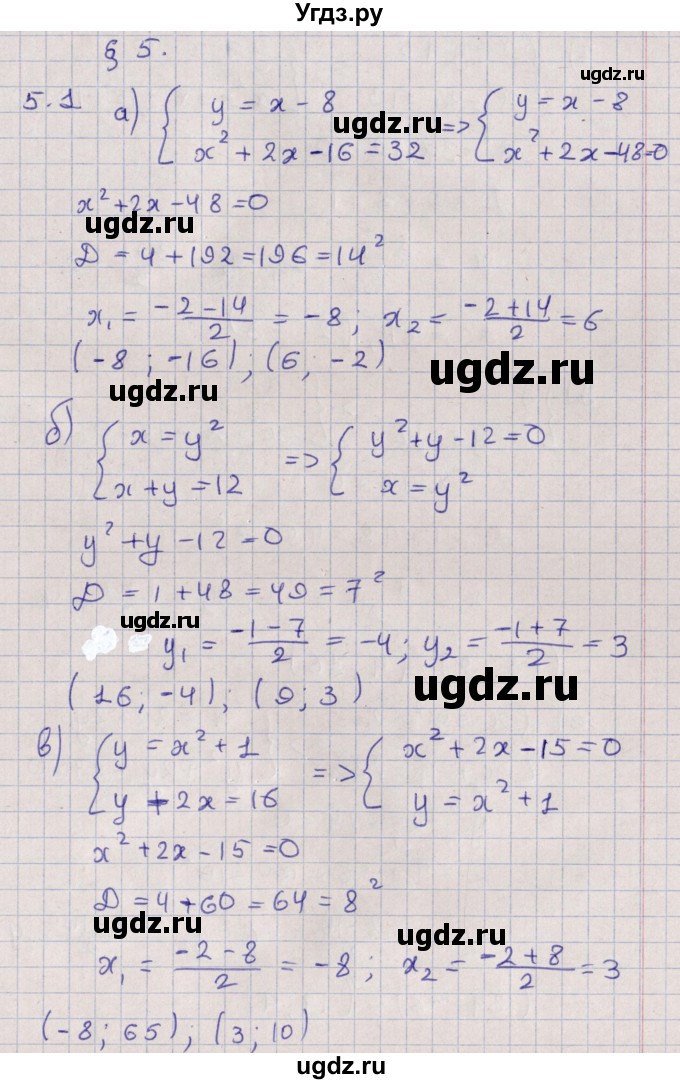 Угдз.ру
§ 5.
ugdz.ru
5.1 а) { y = x - 8
x² + 2x - 16 = 32 => { y = x - 8
x² + 2x - 48 = 0
ugdz.ru
x² + 2x - 48 = 0
ugdz.ru
D = 4 + 192 = 196 = 14²
ugdz.ru
x₁ = (-2 - 14)/2 = -8; x₂ = (-2 + 14)/2 = 6
(-8; -16); (6; -2)
ugdz.ru
ugdz.ru
б) { x = y²
x + y = 12 => { y² + y - 12 = 0
x = y²
ugdz.ru
y² + y - 12 = 0
D = 1 + 48 = 49 = 7²
ugdz.ru
y₁ = (-1 - 7)/2 = -4; y₂ = (-1 + 7)/2 = 3
ugdz.ru
(16; -4); (9; 3)
в) { y = x² + 1
y + 2x = 16 => { x² + 2x - 15 = 0
y = x² + 1
ugdz.ru
x² + 2x - 15 = 0
D = 4 + 60 = 64 = 8²
ugdz.ru
ugdz.ru
x₁ = (-2 - 8)/2 = -8; x₂ = (-2 + 8)/2 = 3
(-8; 65); (3; 10)
ugdz.ru